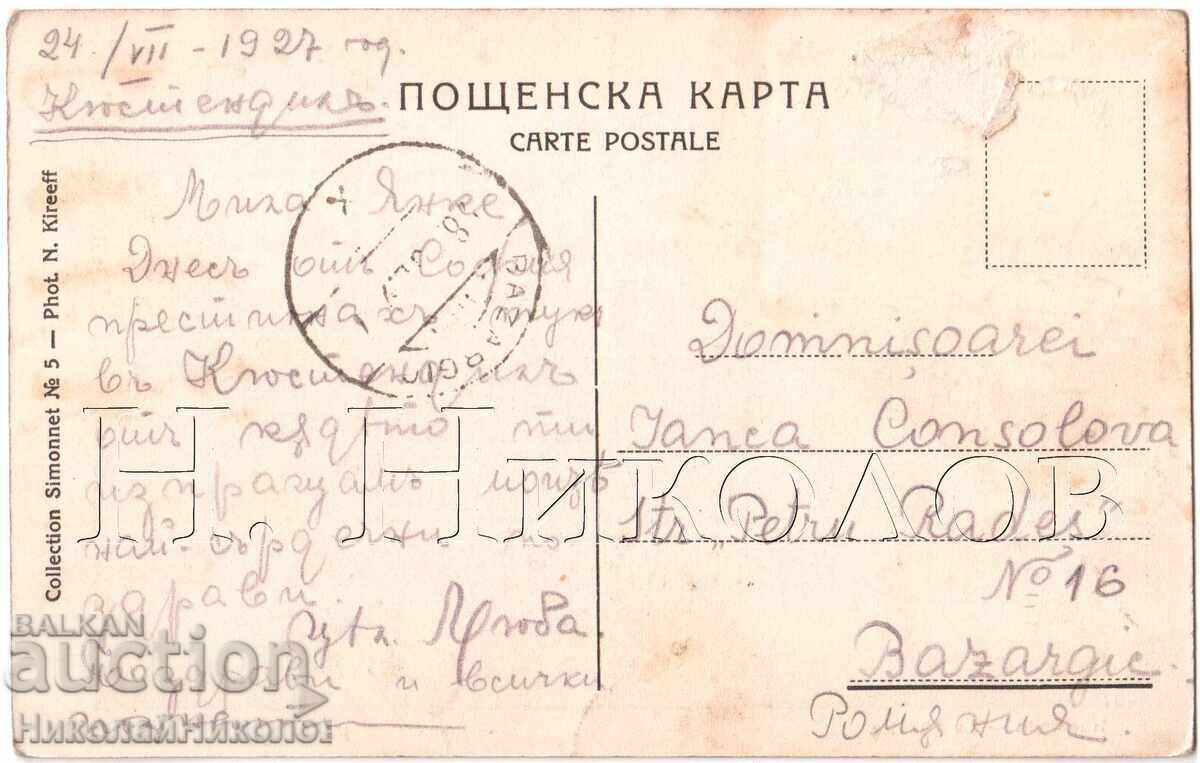 24./VII - 1927 год.
Кюстендилъ.
ПОЩЕНСКА КАРТА
CARTE POSTALE
Collection Simonnet № 5 — Phot. N. Kireeff
Мила Янке
Днесъ отъ София
престигнахъ тук
въ Кюстендилъ
отъ кѫдѣто ти
изпращамъ
най-сърдечни по
здрави.
цув. Люба.
Поздрави и всички
Domnișoarei
Janca Consolova
Str. „Petru Rareș"
№ 16
Bazargic.
Ромѫния.
Н. Николов
BALKAN
auction
НиколайНиколов